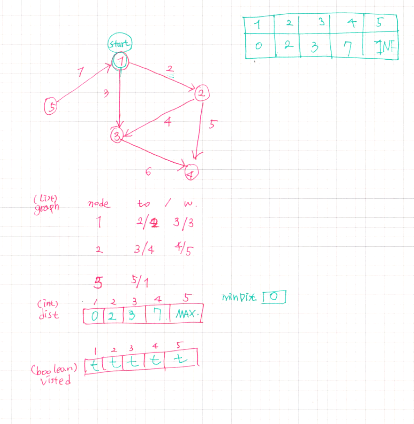 1 2 3 4 5
0 2 3 7 INF
start
1
1 2
3
5 2
4 5
3
6
4
(List)
graph node to / w.
1 2/2 3/3
2 3/4 4/5
5 5/1
(int)
dist
1 2 3 4 5
0 2 3 7 MAX.
minDist 0
1 2 3 4 5
(boolean)
visted
t t t t t